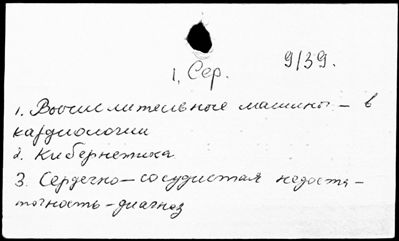 1, Сер. 9/39.
1. Вычислительные машины – в
кардиологии
2. Кибернетика
3. Сердечно-сосудистая недоста-
точность-диагноз